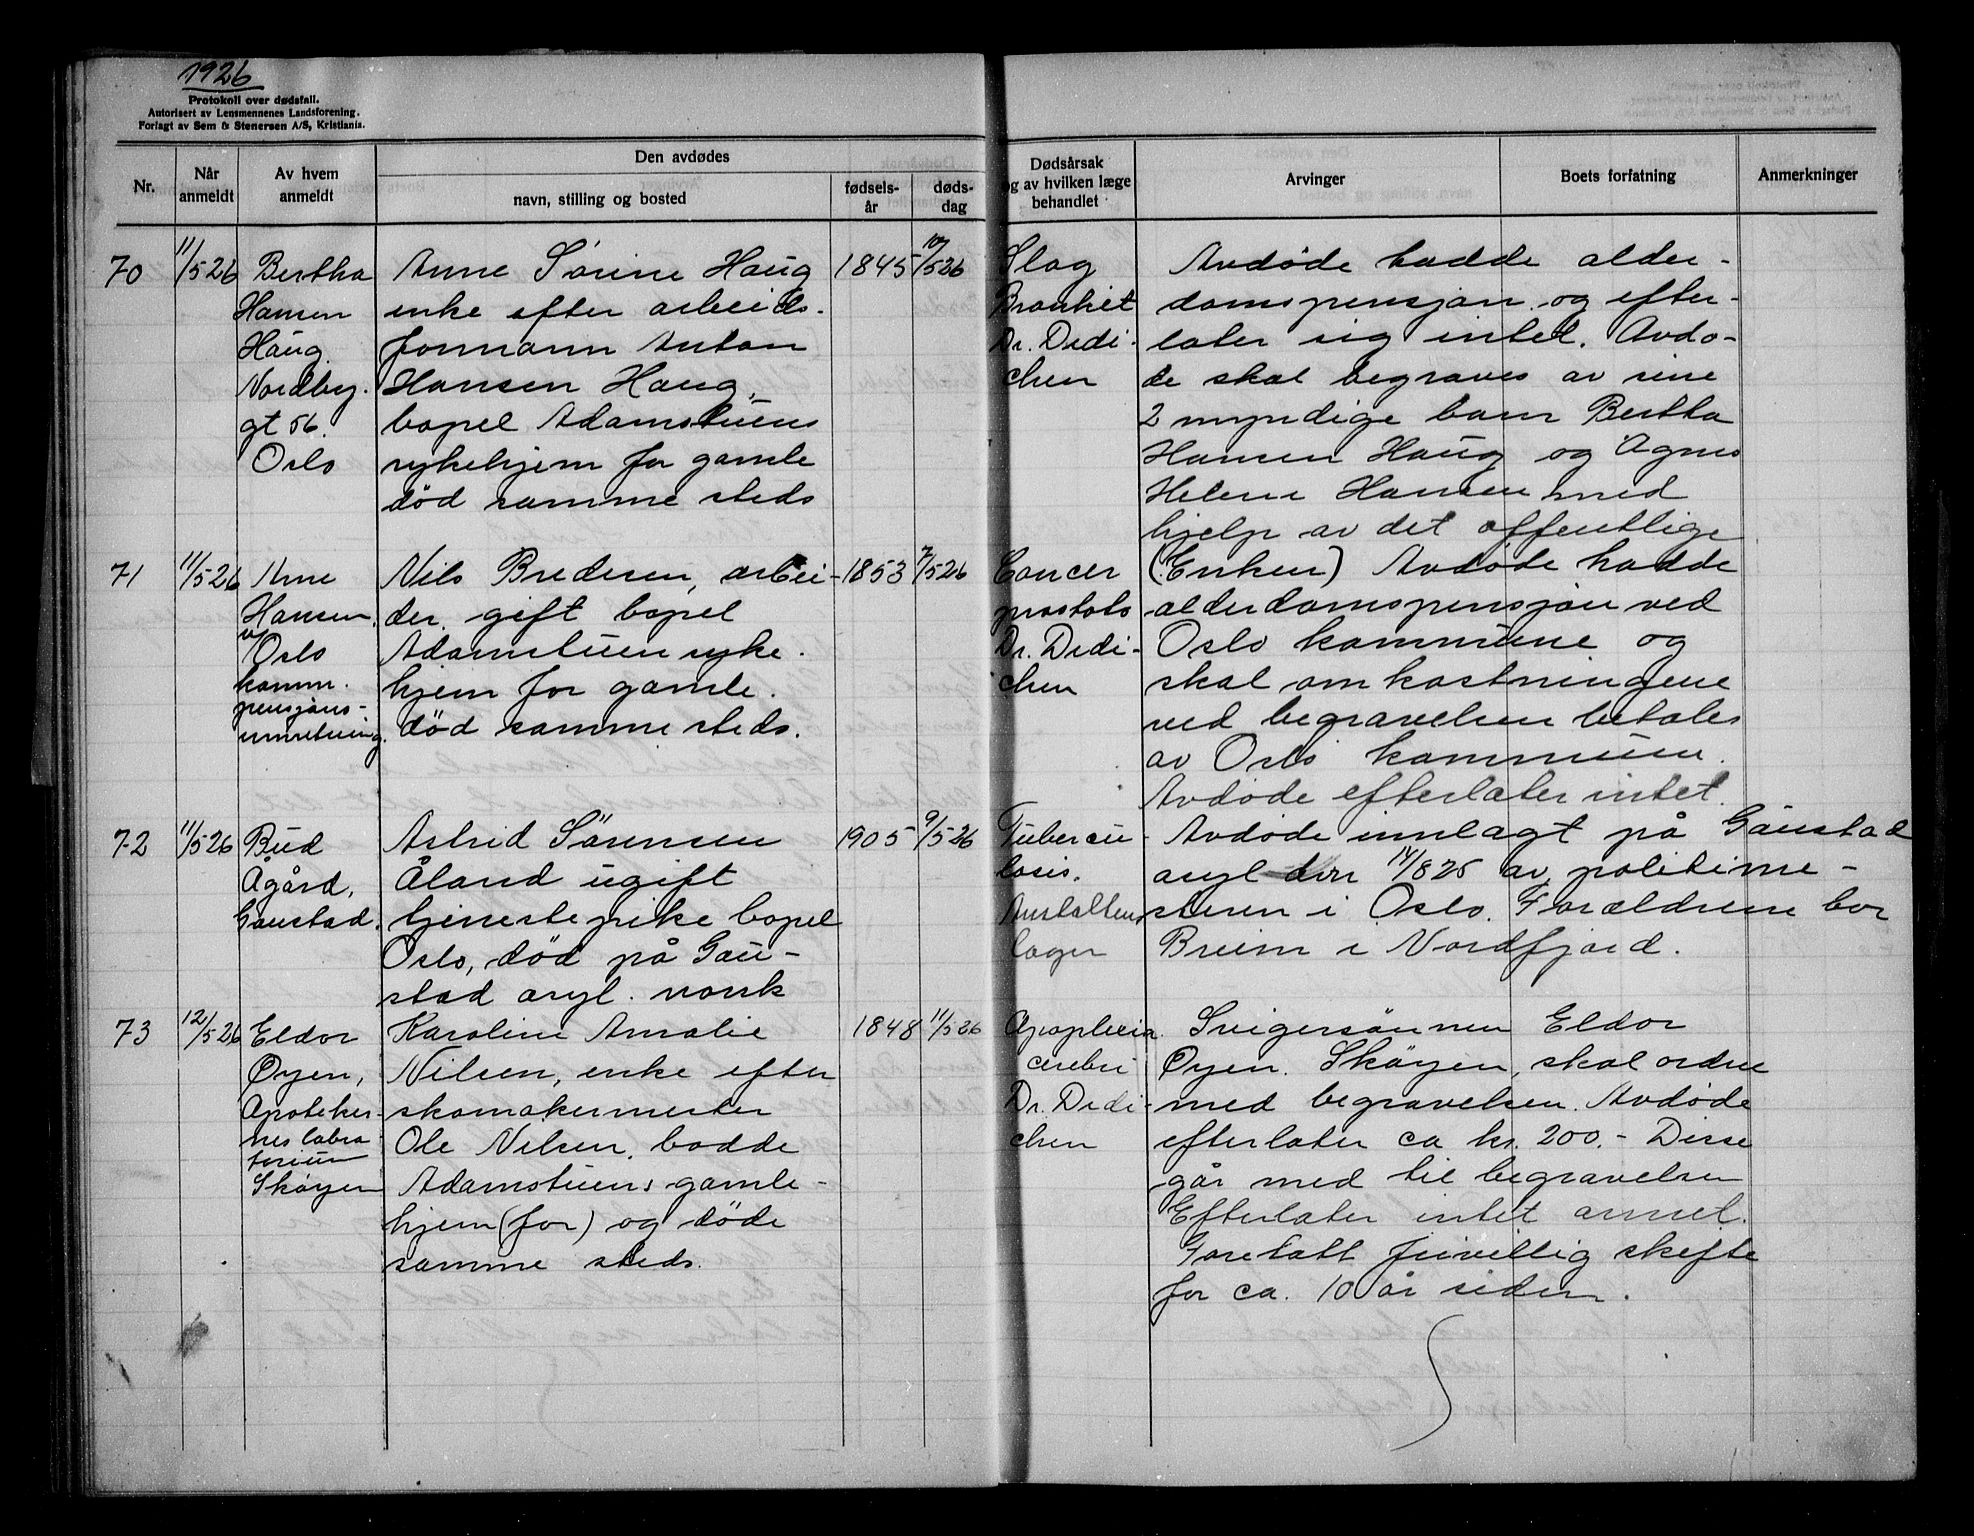 1926
Protokoll over dødsfall.
Autorisert av Lensmennenes Landsforening.
Forlagt av Sem & Stenersen A/S, Kristiania.
Nr.
Når anmeldt
Av hvem anmeldt
Den avdødes
navn, stilling og bosted
fødsels-år
døds-dag
Dødsårsak
og av hvilken læge
behandlet
Arvinger
Boets forfatning
Anmerkninger
70
11/5 26
Bertha
Hansen
Haug.
Nordby.
gt 56.
Oslo
Anne Sörine Haug
enke efter arbeids.
formann Anton
Hansen Haug,
bopel Adamstuens
sykehjem for gamle
död samme steds
1845
10/5 26
Slag
Bronkit
Dr. Dedi-
chen
Avdöde hadde alder-
domspensjon og efter-
later sig intet. Avdö-
de skal begraves av sine
2 myndige barn Bertha
Hansen Haug og Agnes
Helene Hansen med
hjelp av det offentlige
71
11/5 26
Arne
Hansen,
v/
Oslo
komm.
pensjons-
innretning.
Nils Bredesen, arbei-
der, gift bopel
Adamstuen syke.
hjem for gamle.
död samme steds.
1853
7/5 26
Cancer
prostats
Dr. Dedi-
chen
(Enken) Avdöde hadde
alderdomspensjon ved
Oslo kommune og
skal omkostningene
ved begravelsen betales
av Oslo kommune.
Avdöde efterlater intet.
72
11/5 26
Bud
Ågård,
Gaustad.
Astrid Sörensen
Åland ugift
tjenestepike bopel
Oslo, död på Gau-
stad asyl. norsk
1905
9/5 26
Tubercu-
losis.
Anstaltens
læger
Avdöde innlagt på Gaustad
asyl den 14/8 25 av politime-
steren i Oslo. Forældrene bor
Breim i Nordfjord.
73
12/5 26
Eldor
Öyen,
Apoteker-
nes labra
torium
Sköyen
Karoline Amalie
Nilsen, enke efter
skomakermester
Ole Nilsen, bodde
Adamstuens gamle-
hjem (for) og döde
samme steds.
1848
11/5 26
Apoplexia
cerebri
Dr. Dedi-
chen
Svigersönnen Eldor
Öyen. Sköyen, skal ordne
med begravelsen. Avdöde
efterlater ca kr. 200.- Disse
går med til begravelsen
Efterlater intet annet.
Foretatt frivillig skifte
for ca. 10 år siden.